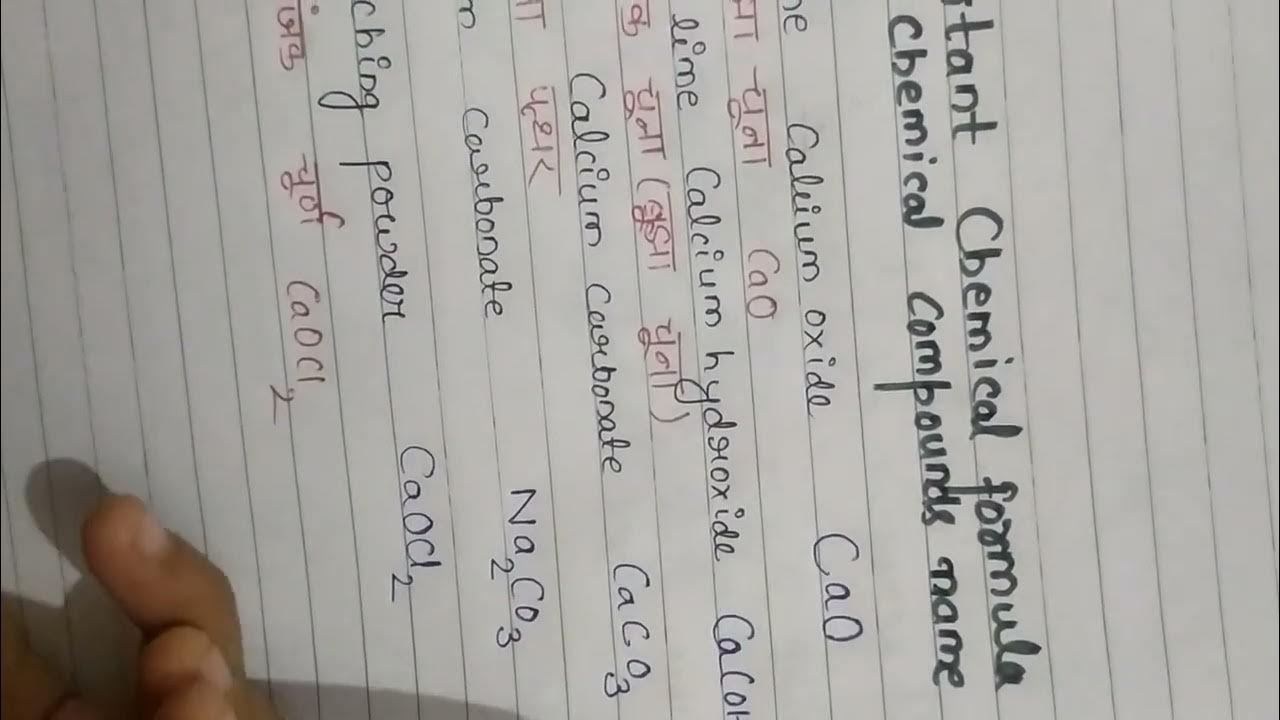 tant Chemical formula
Chemical compounds name
Calcium oxide CaO
चूना CaO
lime Calcium hydroxide Ca(OH
चूना (बुझा चूना)
Calcium Carbonate CaCO3
पत्थर
Carbonate Na2CO3
ching powder CaOCl2
चूर्ण CaOCl2